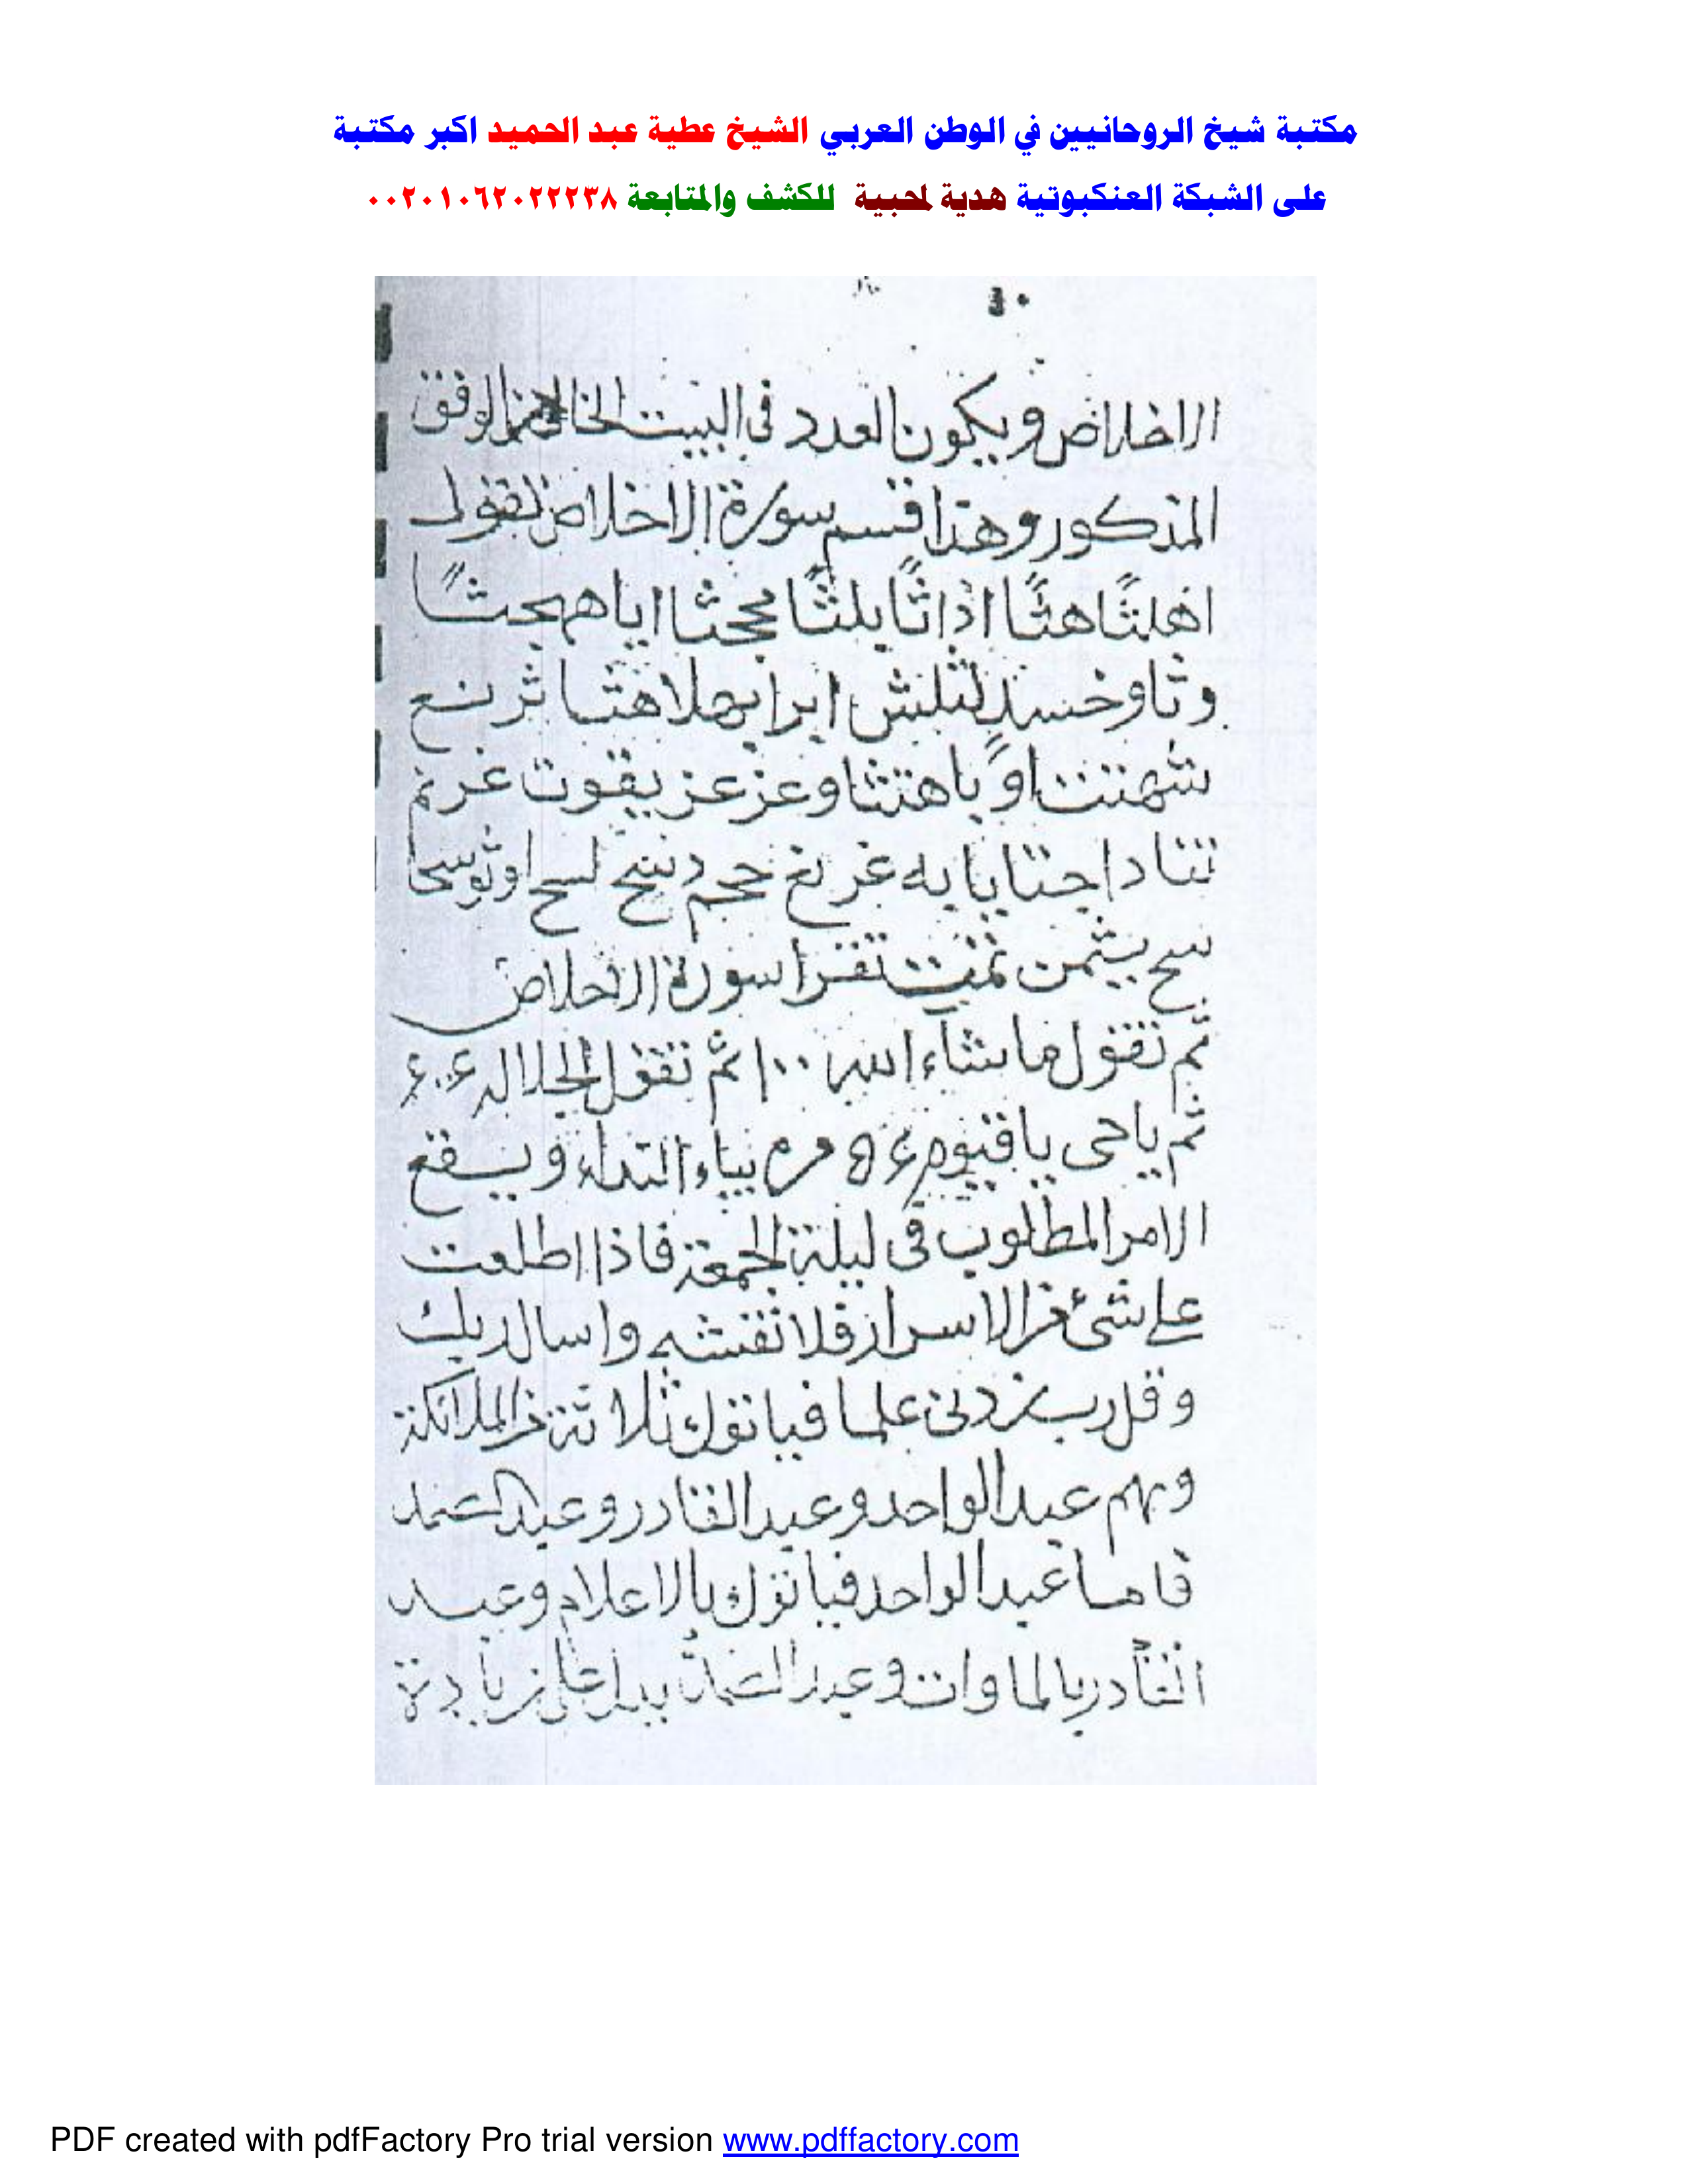 مكتبة شيخ الروحانيين في الوطن العربي الشيخ عطية عبد الحميد اكبر مكتبة
على الشبكة العنكبوتية هدية لمحبية للكشف والمتابعة ٠٠٢٠١٠٦٢٠٢٢٢٣٨
الاخلاص ويكون العدد في البيت الخالى من الوفق
المذكور وهذا قسم سورة الاخلاص تقول
اهلثًا هثًا اذاثًا يلثًا مجحثا اياهمجثًا
وثا وخسند لثلش ابرا بهلا هثا ثر نع
شهنتثا وًيا هتثا وعز عزيقوت غرنم
تثا داجثا يا يه غر نغ حجم
تمت تقرا سورة الاخلاص
ثم تقول ما شآء الله ١٠٠ ثم تقول الجلاله
ثم ياحى ياقيوم مره بياء النداء ويقع
الامر المطلوب فى ليلة الجمعة فاذا اطلعت
على شئ من الاسرار فلا تفشه واسال ربك
وقل رب زدنى علما فياتوك ثلاثة من الملائكة
وهم عبد الواحد وعبد القادر وعبد الصمد
فاما عبد الواحد فياتوك بالاعلام وعبد
القادر بالماوات وعبد الصمد يدل على زيادة
PDF created with pdfFactory Pro trial version www.pdffactory.com